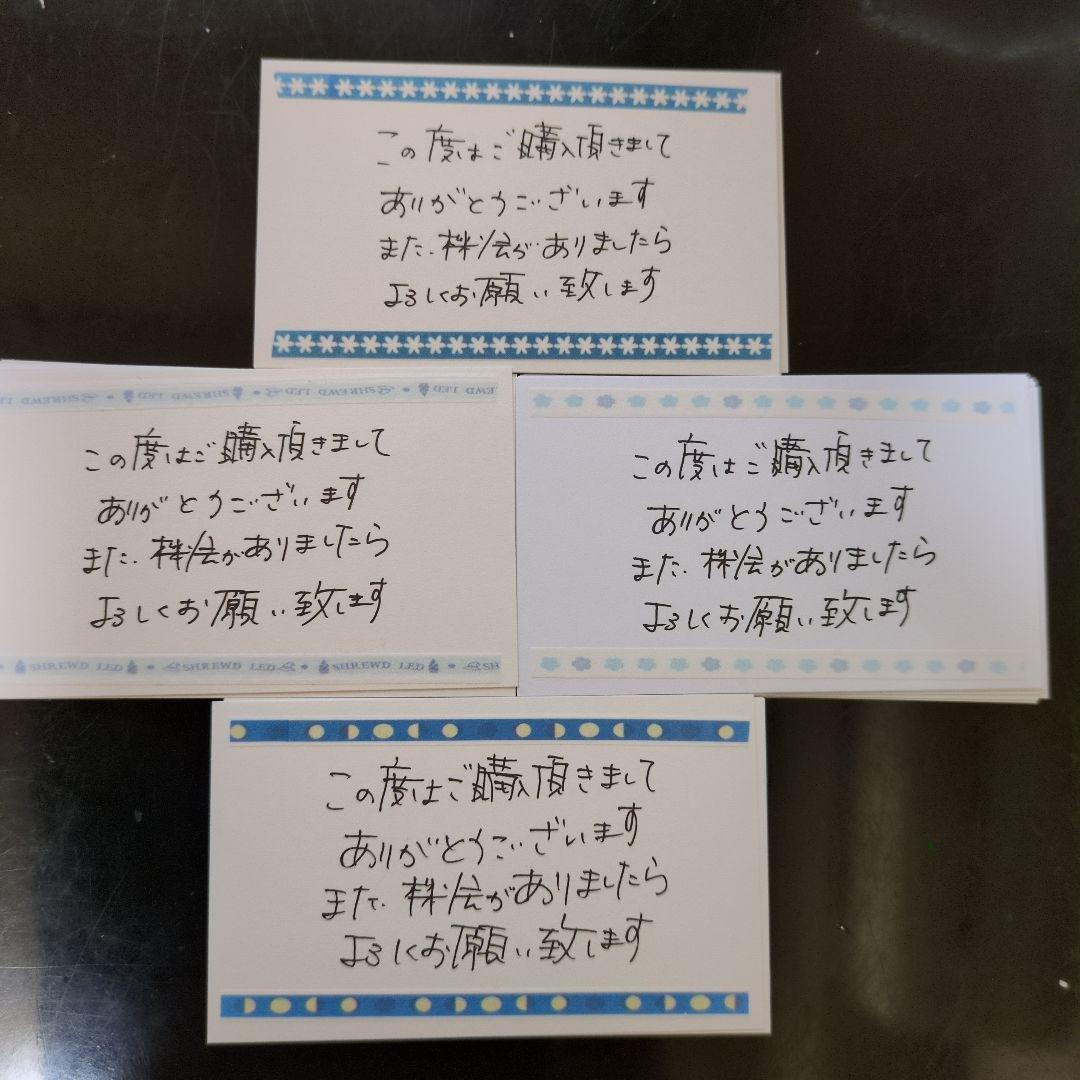 この度はご購入頂きまして
ありがとうございます
また、機会がありましたら
よろしくお願い致します
EWD LED SHREWD LED SHREWD LED
この度はご購入頂きまして
ありがとうございます
また、機会がありましたら
よろしくお願い致します
SHREWD LED SHREWD LED SHREWD LED SH
この度はご購入頂きまして
ありがとうございます
また、機会がありましたら
よろしくお願い致します
この度はご購入頂きまして
ありがとうございます
また、機会がありましたら
よろしくお願い致します